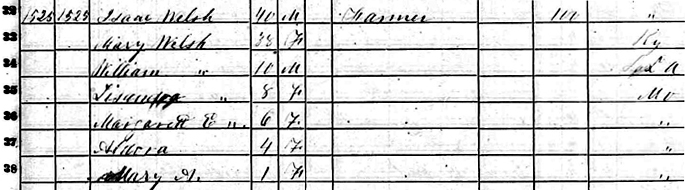 32 1525 1525 Isaac Welsh 40 M Farmer 100 "
33 Mary Welsh 33 F Ky
34 William " 10 M
35 " 8 F Mo
36 Margarett E " 6 F "
37 4 F "
38 Mary A. 1 F "